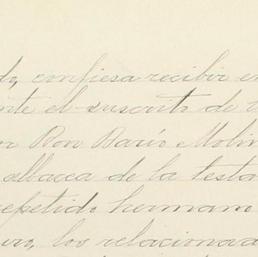 do, confiesa recibir e
nte el suscrito de
or Don Darío Molin
albacea de la testa
repetido hermano
uro, los relacionad